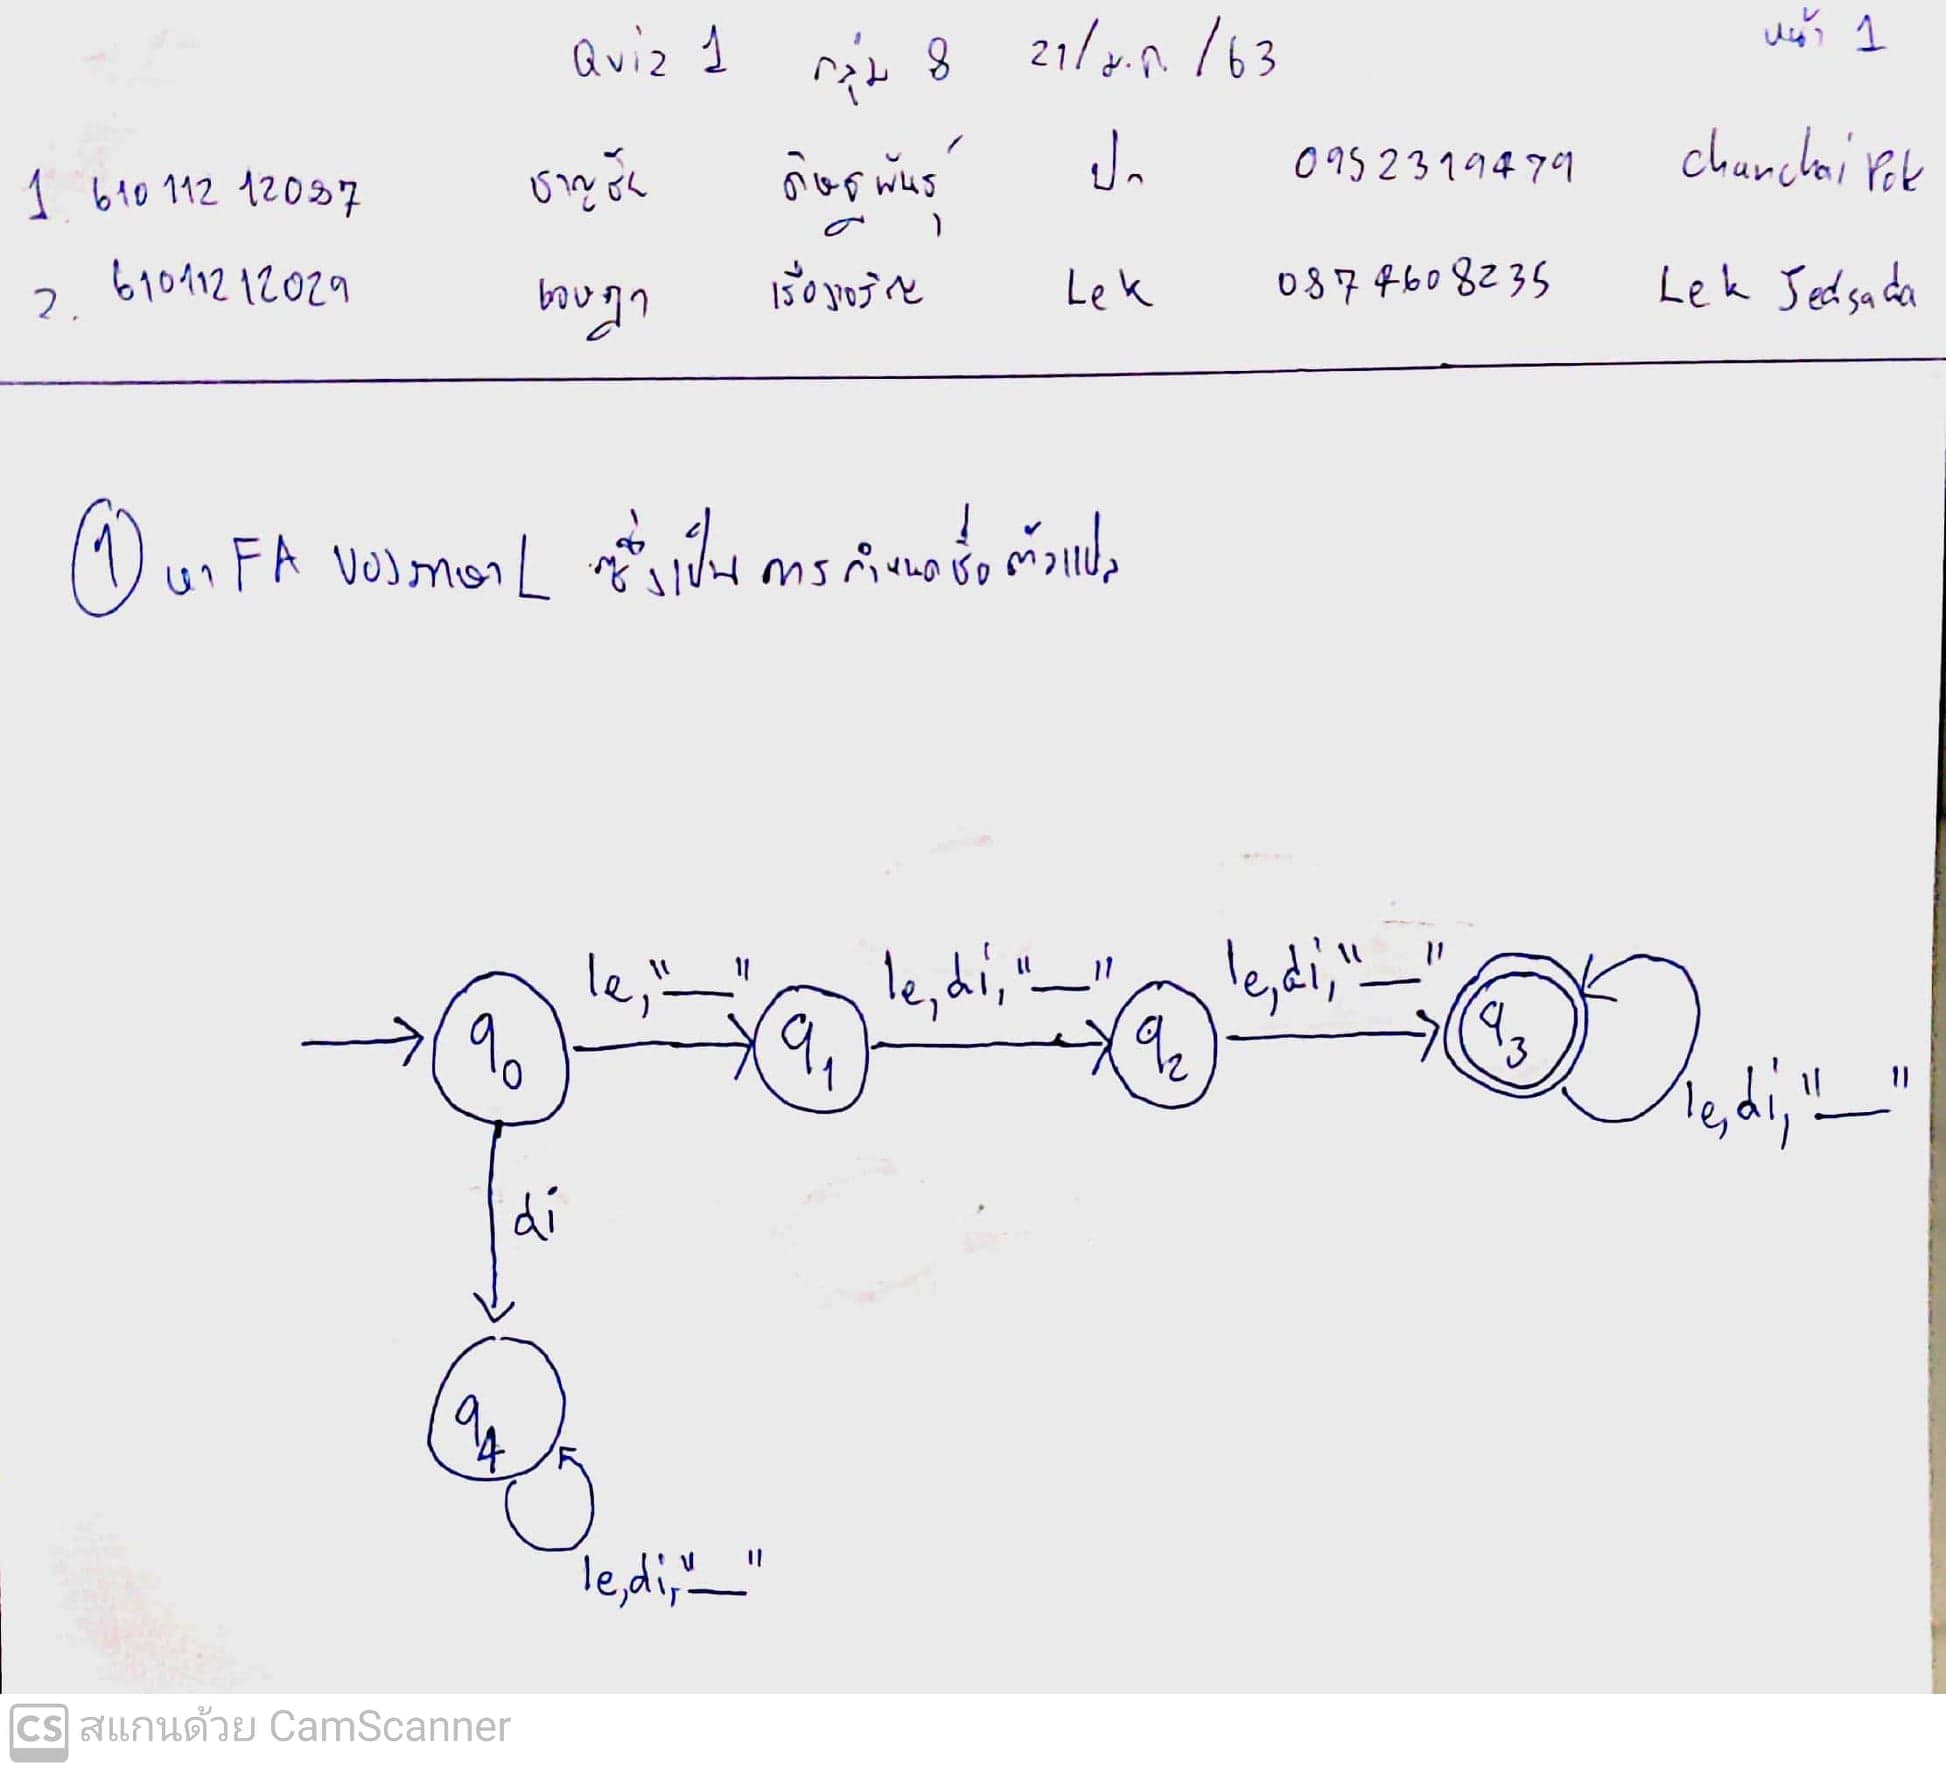 Quiz 1 กลุ่ม 8 21/ม.ค./63
หน้า 1
1. 61011212037 ชาญชัย ดิษฐพันธุ์ ปก 0952319479 Chanchai Pok
2. 61011212029 เจษฎา Lek 0874608235 Lek Jedsada
① หา FA ของภาษา L ซึ่งเป็นการกำหนดชื่อตัวแปร
le,"_" le,di,"_" le,di,"_"
q0 q1 q2 q3
le,di,"_"
di
q4
le,di,"_"
CS สแกนด้วย CamScanner